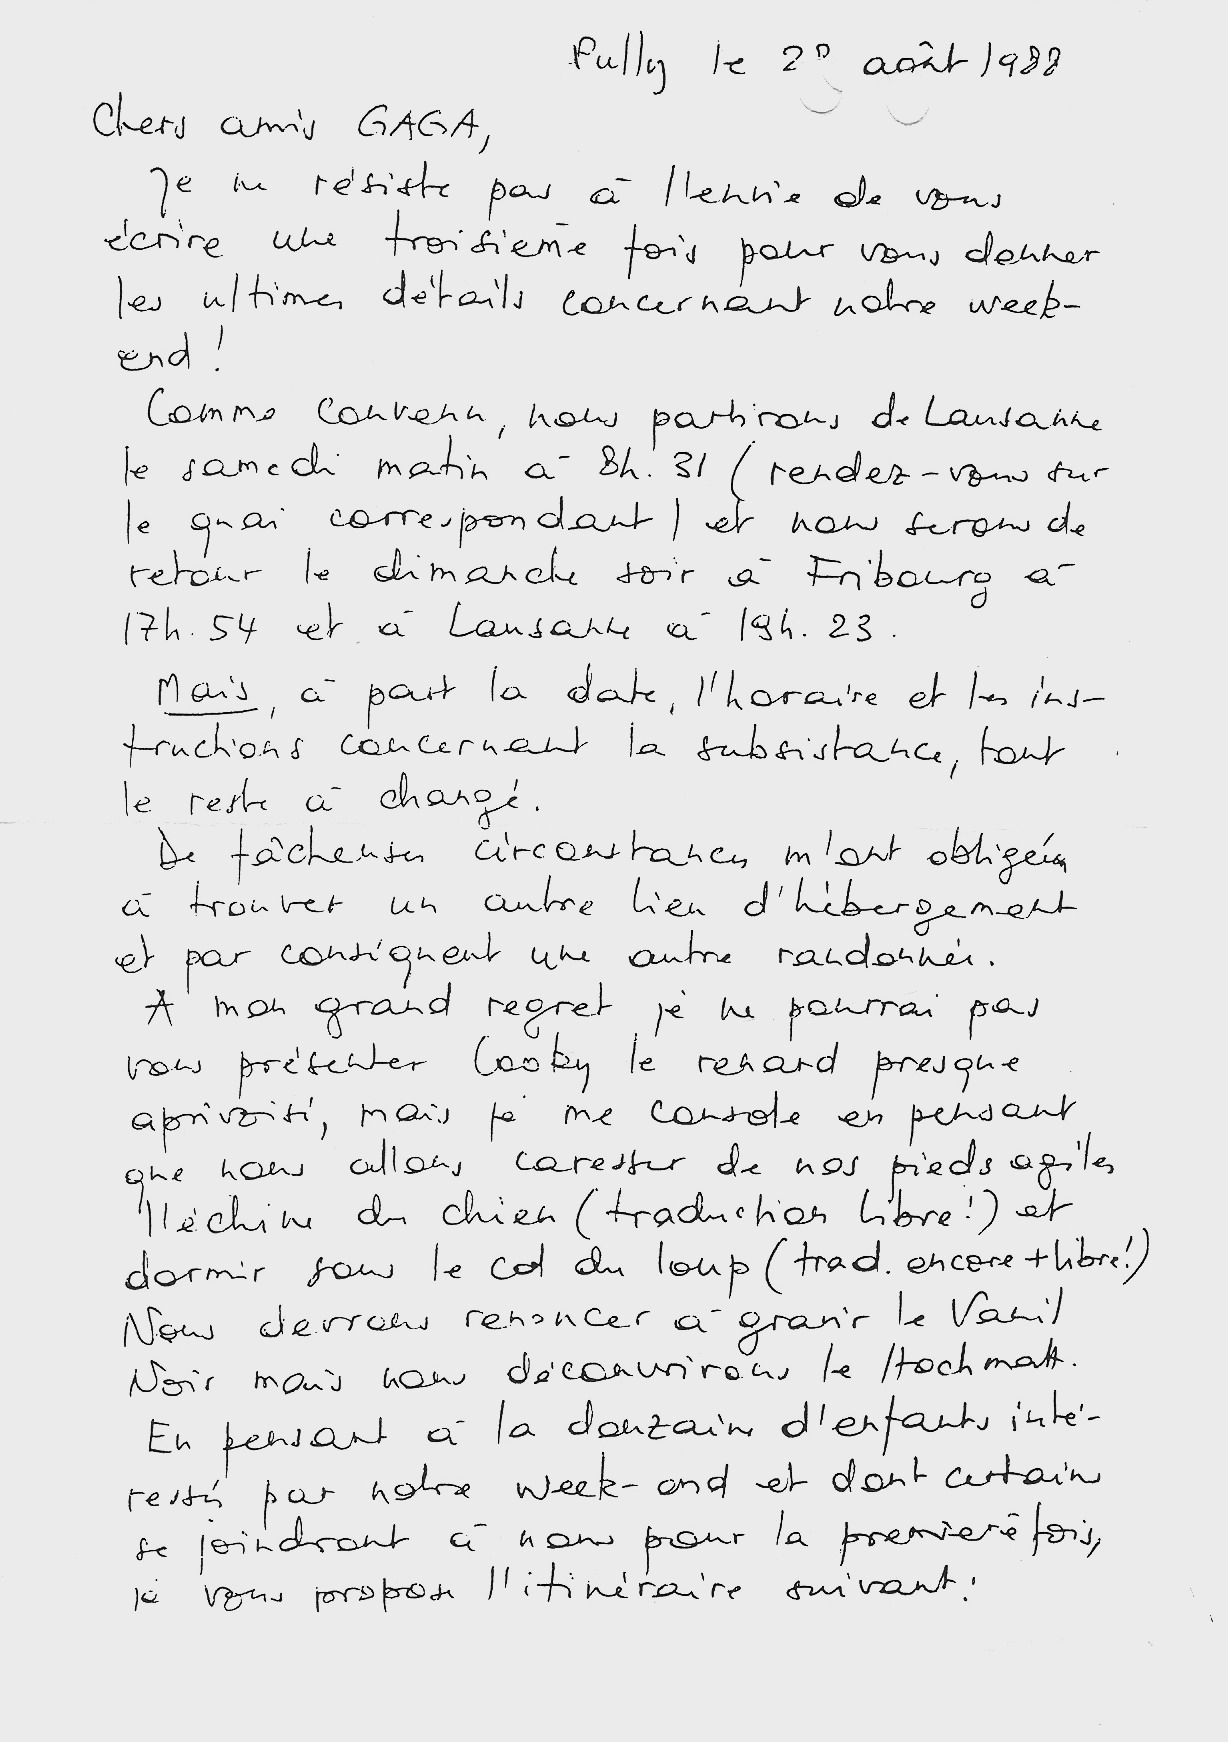 Pully le 20 août 1988
Chers amis GAGA,
Je ne résiste pas à l'envie de vous
écrire une troisième fois pour vous donner
les ultimes détails concernant notre week-
end !
Comme convenu, nous partirons de Lausanne
le samedi matin à 8h. 31 (rendez-vous sur
le quai correspondant) et nous serons de
retour le dimanche soir à Fribourg à
17h. 54 et à Lausanne à 19h. 23.
Mais, à part la date, l'horaire et les ins-
tructions concernant la subsistance, tout
le reste à changé.
De fâcheuses circonstances m'ont obligée
à trouver un autre lieu d'hébergement
et par conséquent une autre randonnée.
A mon grand regret je ne pourrai pas
vous présenter Cooky le renard presque
aprivoisé, mais je me console en pensant
que nous allons caresser de nos pieds agiles
l'échine du chien (traduction libre!) et
dormir sous le col du loup (trad. encore + libre!)
Nous devrons renoncer à gravir le Vanil
Noir mais nous découvrirons le Hochmatt.
En pensant à la douzaine d'enfants inté-
ressés par notre week-end et dont certains
se joindront à nous pour la première fois,
je vous propose l'itinéraire suivant: